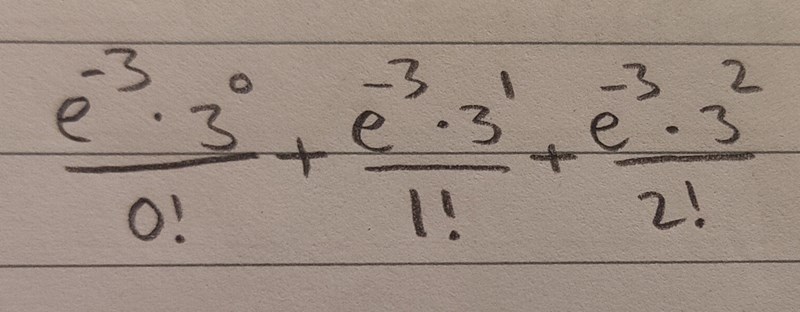 e^{-3} · 3^0 / 0! + e^{-3} · 3^1 / 1! + e^{-3} · 3^2 / 2!